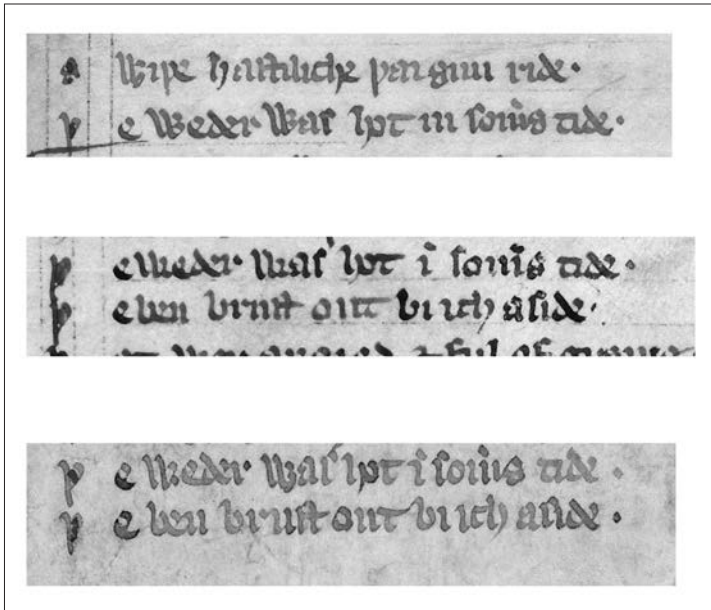 S wiþe hastiliche þai gun ride·
þ e weder was hot in som̃s tide·
þ e weder was hot ĩ som̃s tide·
þ e ben brust out bi ich a side·
þ e weder was hot ĩ som̃s tide·
þ e ben brust out bi ich a side·